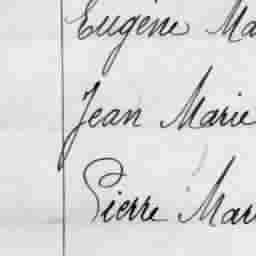 Eugène Ma
Jean Marie
Pierre Mar